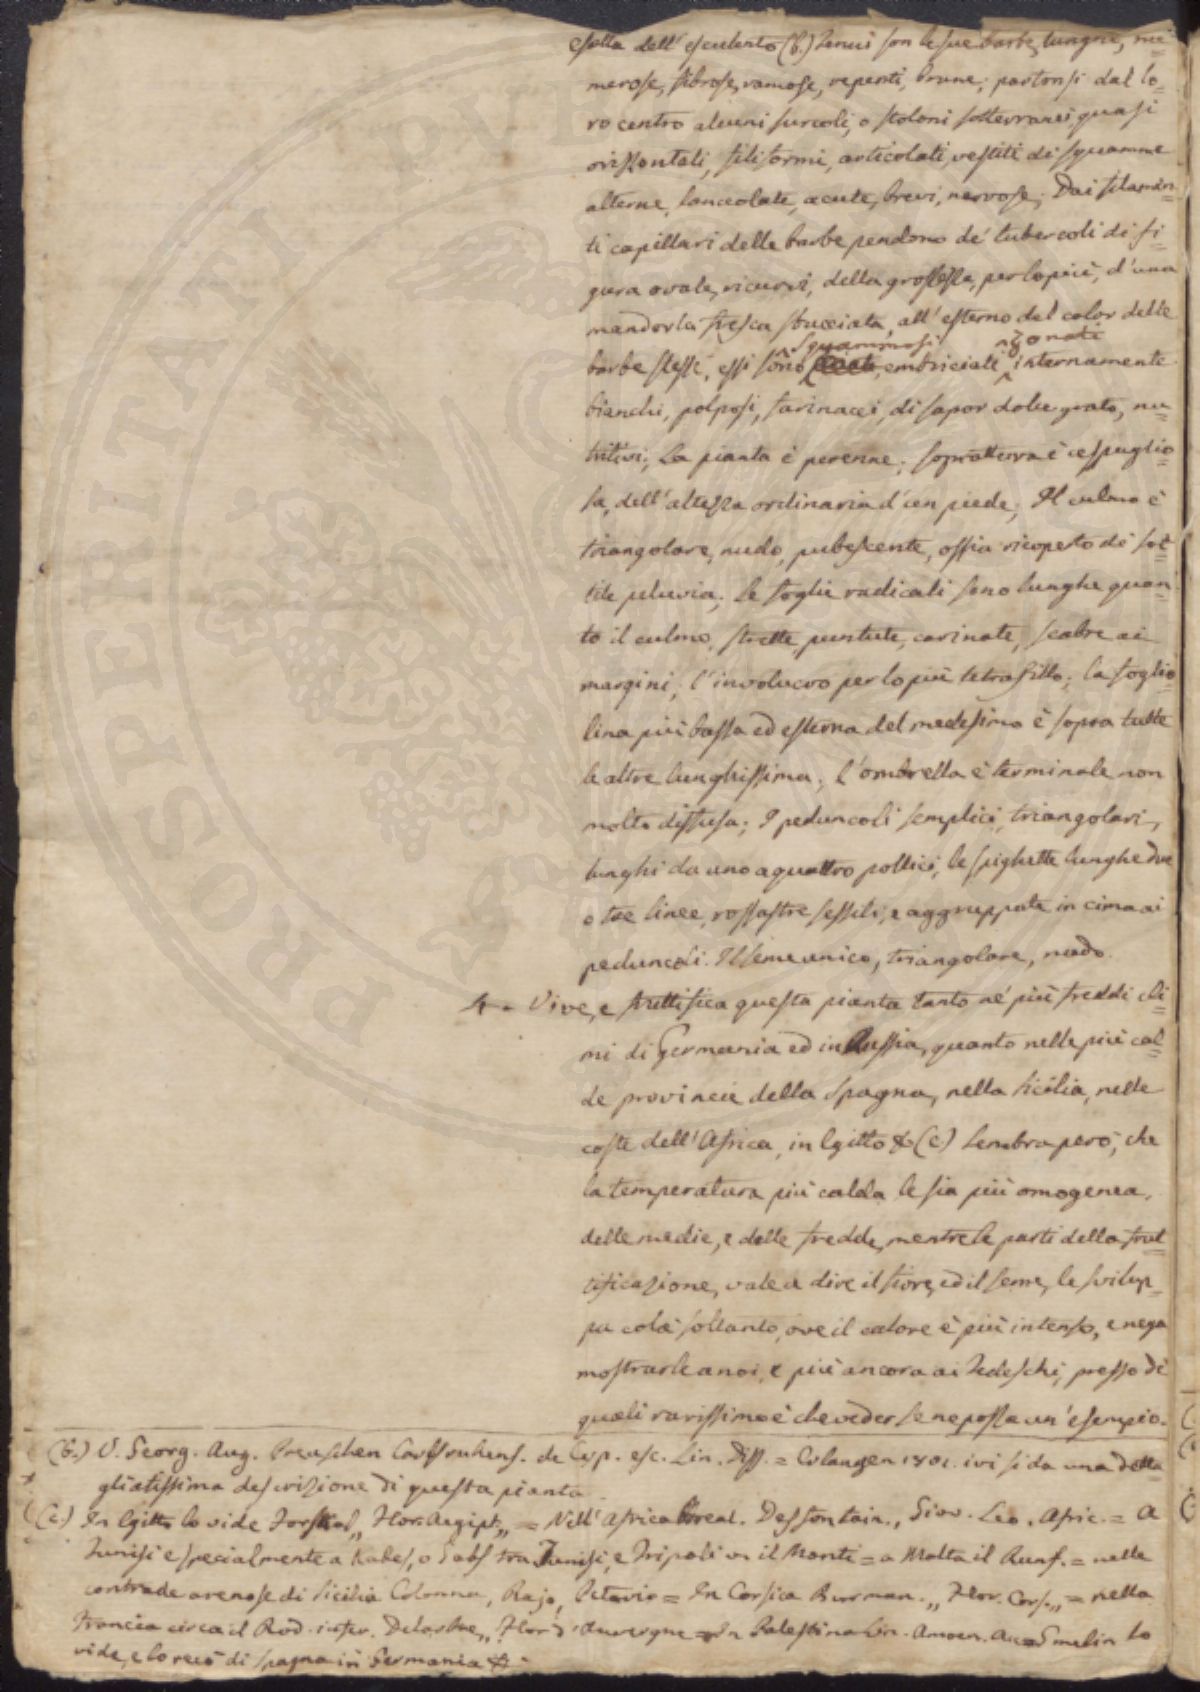 esatta dell'esculento (b.) Tenui son le sue barbe, lunghe, nu=
merose, fibrose, ramose, repenti, brune; partonsi dal lo=
ro centro alcuni surcoli, o stoloni sotterranei quasi
orissontali, filiformi, articolati, vestiti di squamme
alterne, lanceolate, acute, brevi, nervose. Dai filamen=
ti capillari delle barbe pendono de' tubercoli di fi=
gura ovale, ricurvi, della grossezza, per lo più, d'una
mandorla fresca sbucciata, all'esterno del color delle
barbe stesse, essi sono squammosi embriciati zonati internamente
bianchi, polposi, farinacei, di sapor dolce grato, nu=
tritivi; La pianta è perenne; sopratterra è cespuglio=
sa, dell'altezza ordinaria d'un piede; Il culmo è
triangolare, nudo, pubescente, ossia ricoperto di sot=
tile peluvia. Le foglie radicali sono lunghe quan=
to il culmo, strette, puntute, carinate, scabre ai
margini; l'involucro per lo più tetrafillo; la foglio=
lina più bassa ed esterna del medesimo è sopra tutte
le altre lunghissima; l'ombrella è terminale non
molto diffusa; I peduncoli semplici, triangolari,
lunghi da uno a quattro pollici, le spighette lunghe due
o tre linee, rossastre sessili, e aggruppate in cima ai
peduncoli. Il seme unico, triangolare, nudo.
4. Vive, e fruttifica questa pianta tanto ne' più freddi cli=
mi di Germania ed in Russia, quanto nelle più cal=
de provincie della Spagna, nella Sicilia, nelle
coste dell'Africa, in Egitto & (c.) Sembra però, che
la temperatura più calda le sia più omogenea,
delle medie, e delle fredde, mentre le parti della frut=
tificazione, vale a dire il fiore, ed il seme, le svilup=
pa colà soltanto, ove il calore è più intenso, e nega
mostrarle a noi, e più ancora ai Tedeschi, presso de'
quali rarissimo è che veder se ne possa un'esempio.
(b.) V. Georg. Aug. Preuschen Carlsruhens. de Cyp. esc. Lin. Diss. = Erlangen 1801. ivi si da una detta=
gliatissima descrizione di questa pianta
(c.) In Egitto lo vide Forskal „ Flor. Aegipt „ = Nell'Africa boreal. Desfontain., Giov. Leo. Afric. = A
Tunisi e specialmente a Kabes, o Gabs tra Tunisi, e Tripoli vi il Monti = a Malta il Runf. = nelle
contrade arenose di Sicilia Colonna, Rajo, Petavio = In Corsica Burman. „ Flor. Cors. „ = nella
Francia circa il Rod. infer. Delarbre „ Flor d'Auvergne = In Palestina Lin. Amoen. Ac = Gmelin lo
vide, e lo recò di Spagna in Germania &
PROSPERITATI PVB